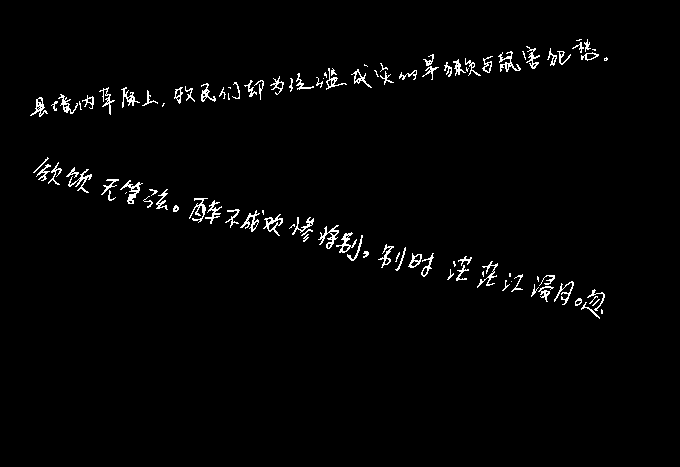 县境内草原上，牧民们却为泛滥成灾的旱獭与鼠害犯愁。
欲饮无管弦。醉不成欢惨将别。别时茫茫江浸月。忽